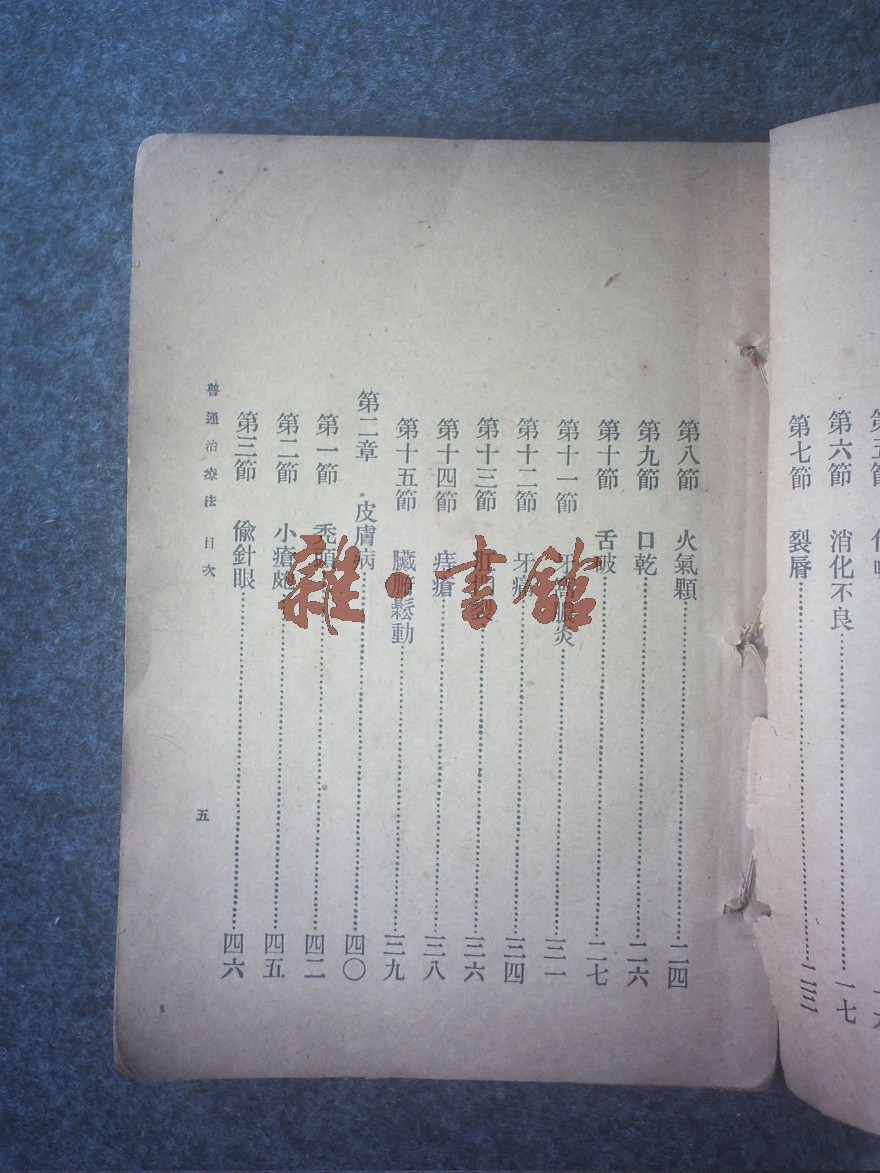 第六節 消化不良 一七
第七節 裂唇 二三
第八節 火氣顆 二四
第九節 口乾 二六
第十節 舌破 二七
第十一節 牙 膜炎 三一
第十二節 牙痛 三四
第十三節 三六
第十四節 痔瘡 三八
第十五節 臟 鬆動 三九
第二章 皮膚病 四〇
第一節 禿頭 四二
第二節 小瘡皰 四五
第三節 偸針眼 四六
普通治療法 目次
五
雜·書館